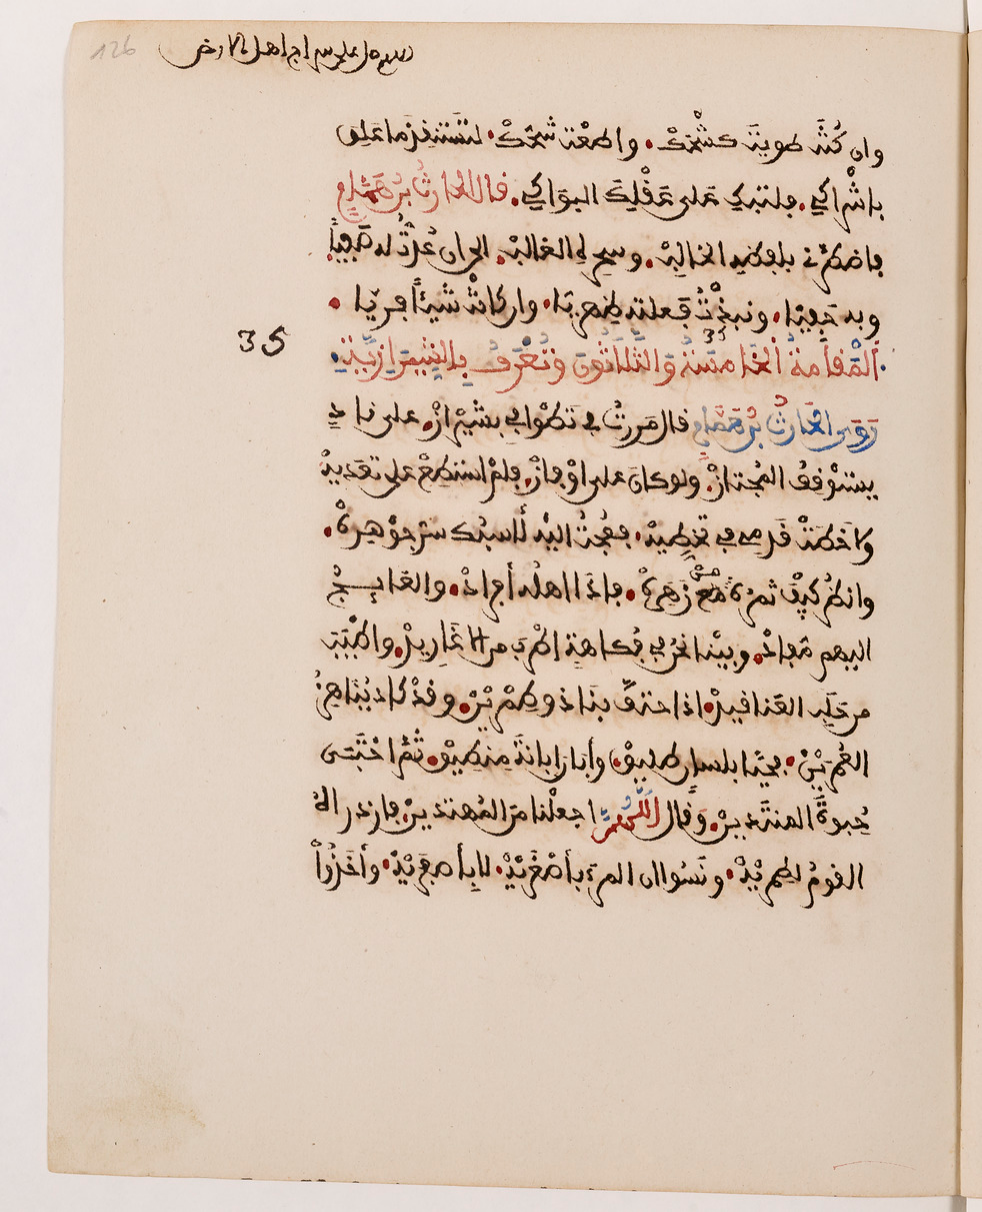 126
وان كُنْتَ طويتَ كشْحَكْ. واطعْتَ شُحَّكْ. لتستنقِذَ ما عَلِقَ
باشْراكي. فلتبكِ على عَقْلِكَ البَوَاكي. قال الحارثُ بنُ هَمَّامٍ
فاضطرَّني بلفظِهِ الخالِبْ. وسِحْرِهِ الغالبْ. الى ان عُدْتُ له صَفِيّاً
وبه حَفِيّا. ونبذْتُ فَعلتَه ظِهرِيّا. وان كانتْ شَيْـًٔا فَرِيّا.
35
اَلْمَقَامَةُ اَلْخَامِسَةُ وَالثَّلَاثُونَ وَتُعْرَفُ بِالشِّيرَازِيَّةِ.
35
رَوَى الحَارثُ بْنُ هَمَّامٍ قال مَررتُ في تَطْوافي بشيْرازْ. على نادٍ
يستَوْقِفُ المُجتازْ. ولو كانَ على اوْفازْ. فلمْ استطِعْ على تعَدّيهْ
ولا خَطَتْ قَدمي في تخطّيهْ. فعُجْتُ اليْهِ لأسبُك سرّ جوْهرِهْ.
وانظُر كيْفَ ثمرُهُ منْ زَهَرِهْ. فاذا اهلُه أفرادْ. والعَايِجُ
اليهم مُفادْ. وبيْنا نحْنُ في فُكاهةٍ اطْرَبَ من الاغَارِيدْ. واطْيَبَ
من حَلَبِ العَناقيدْ. اذا احتفَّ بنَا ذو طِمْرَيْنْ. وقدْ كادَ يُناهِزُ
العُمرَيْنْ. فحيّا بلسانٍ طليقْ. وأبَانَ إبانةَ مِنطِيقْ. ثُمَّ احْتَبَى
حُبوةَ المنتَدِينْ. وَقال اَللّٰهُمَّ اجعلْنا منَ المُهتدينْ. فازدراهُ
القومُ لطِمرَيْهْ. ونَسُوا ان المرءَ بأصْغَرَيْهْ. لا بِأصغَرَيْهْ. وأخَذُواْ